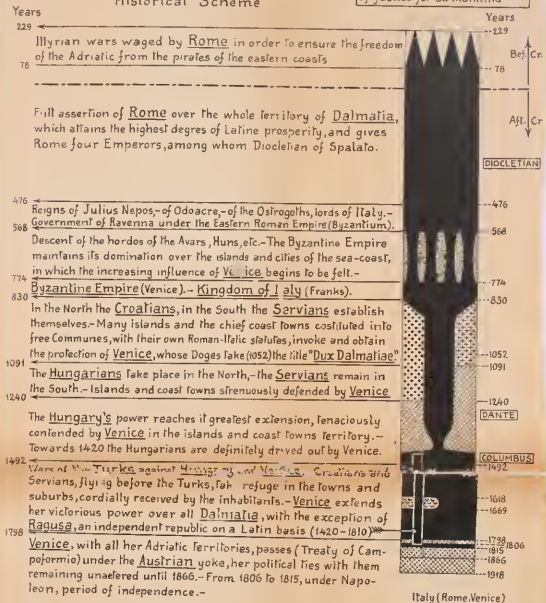 Historical Scheme
of justice for all mankind
Years
Years
229
Illyrian wars waged by Rome in order to ensure the freedom
of the Adriatic from the pirates of the eastern coasts
78
229
78
Bef. Cr.
Aft. Cr
Full assertion of Rome over the whole territory of Dalmatia,
which attains the highest degres of Latine prosperity, and gives
Rome four Emperors, among whom Diocletian of Spalato.
DIOCLETIAN
476
Reigns of Julius Nepos,-of Odoacre,-of the Ostrogoths, lords of Italy.-
Government of Ravenna under the Eastern Roman Empire (Byzantium).
568
476
568
Descent of the hordos of the Avars, Huns, etc.-The Byzantine Empire
maintains its domination over the islands and cities of the sea-coast,
in which the increasing influence of Venice begins to be felt.-
774
Byzantine Empire (Venice).- Kingdom of Italy (Franks).
830
774
830
In the North the Croatians, in the South the Servians establish
themselves.- Many islands and the chief coast towns costituted into
free Communes, with their own Roman-Italic statutes, invoke and obtain
the protection of Venice, whose Doges take (1052) the title "Dux Dalmatiae"
1091
1052
1091
The Hungarians take place in the North,-the Servians remain in
the South.- Islands and coast towns strenuously defended by Venice
1240
1240
DANTE
The Hungary's power reaches it greatest extension, tenaciously
contended by Venice in the islands and coast towns territory.-
Towards 1420 the Hungarians are definitely drived out by Venice.
1492
COLUMBUS
1492
Wars of the Turks against Hungary and Venice. Croatians and
Servians, flying before the Turks, tak refuge in the towns and
suburbs, cordially received by the inhabitants.- Venice extends
her victorious power over all Dalmatia, with the exception of
Ragusa, an independent republic on a Latin basis (1420-1810)
1798
1618
1669
1798
1806
1815
1866
1918
Venice, with all her Adriatic territories, passes (Treaty of Cam-
poformio) under the Austrian yoke, her political ties with them
remaining unaetered until 1866.- From 1806 to 1815, under Napo-
leon, period of independence.-
Italy (Rome.Venice)